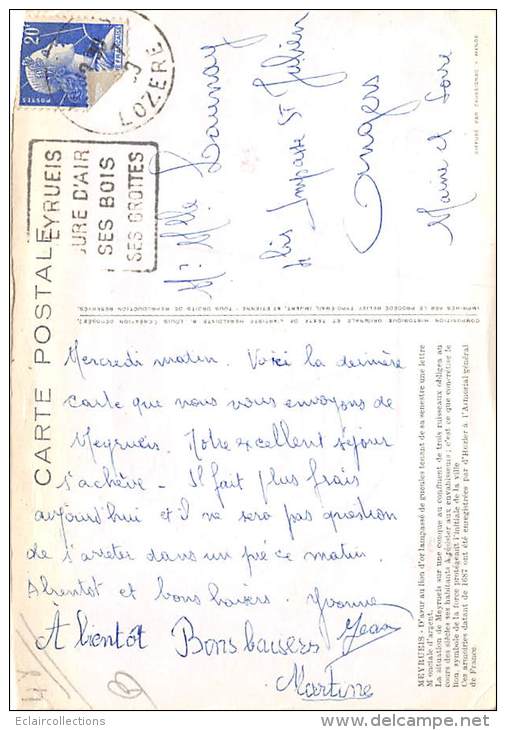 20F
POSTES
LOZERE
EYRUEIS
CURE D'AIR
SES BOIS
SES GROTTES
CARTE POSTALE
Mr. Mlle Daunay
4 bis Impasse St Julien
Angers
Maine et Loire
COMPOSITION HISTORIQUE ORIGINALE ET TEXTE DE L'ARTISTE HERALDISTE R. LOUIS (CREATION DEPOSEE),
IMPRIMEE PAR LE PROCEDE RELIEF TYPO-EMAIL, ST ETIENNE - TOUS DROITS DE REPRODUCTION RESERVES.
Mercredi matin. Voici la dernière
carte que nous vous envoyons de
Meyrueis. Notre excellent séjour
s'achève - Il fait plus frais
aujourd'hui et il ne sera pas question
de s'arreter dans un pré ce matin.
A bientot et bons baisers. Yvonne
Jean
À bientôt Bons baisers
Martine
MEYRUEIS - D'azur au lion d'or lampassé de gueules tenant de sa senestre une lettre
M onciale d'argent.
La situation de Meyrueis sur une conque au confluent de trois ruisseaux obligea au
cours des siècles ses habitants à résister aux envahisseurs ; c'est ce que concrétise le
lion, symbole de la force protégeant l'initiale de la ville.
Ces armoiries datant de 1687 ont été enregistrées par d'Hozier à l'Armorial général
de France.
Eclaircollections
www.delcampe.net